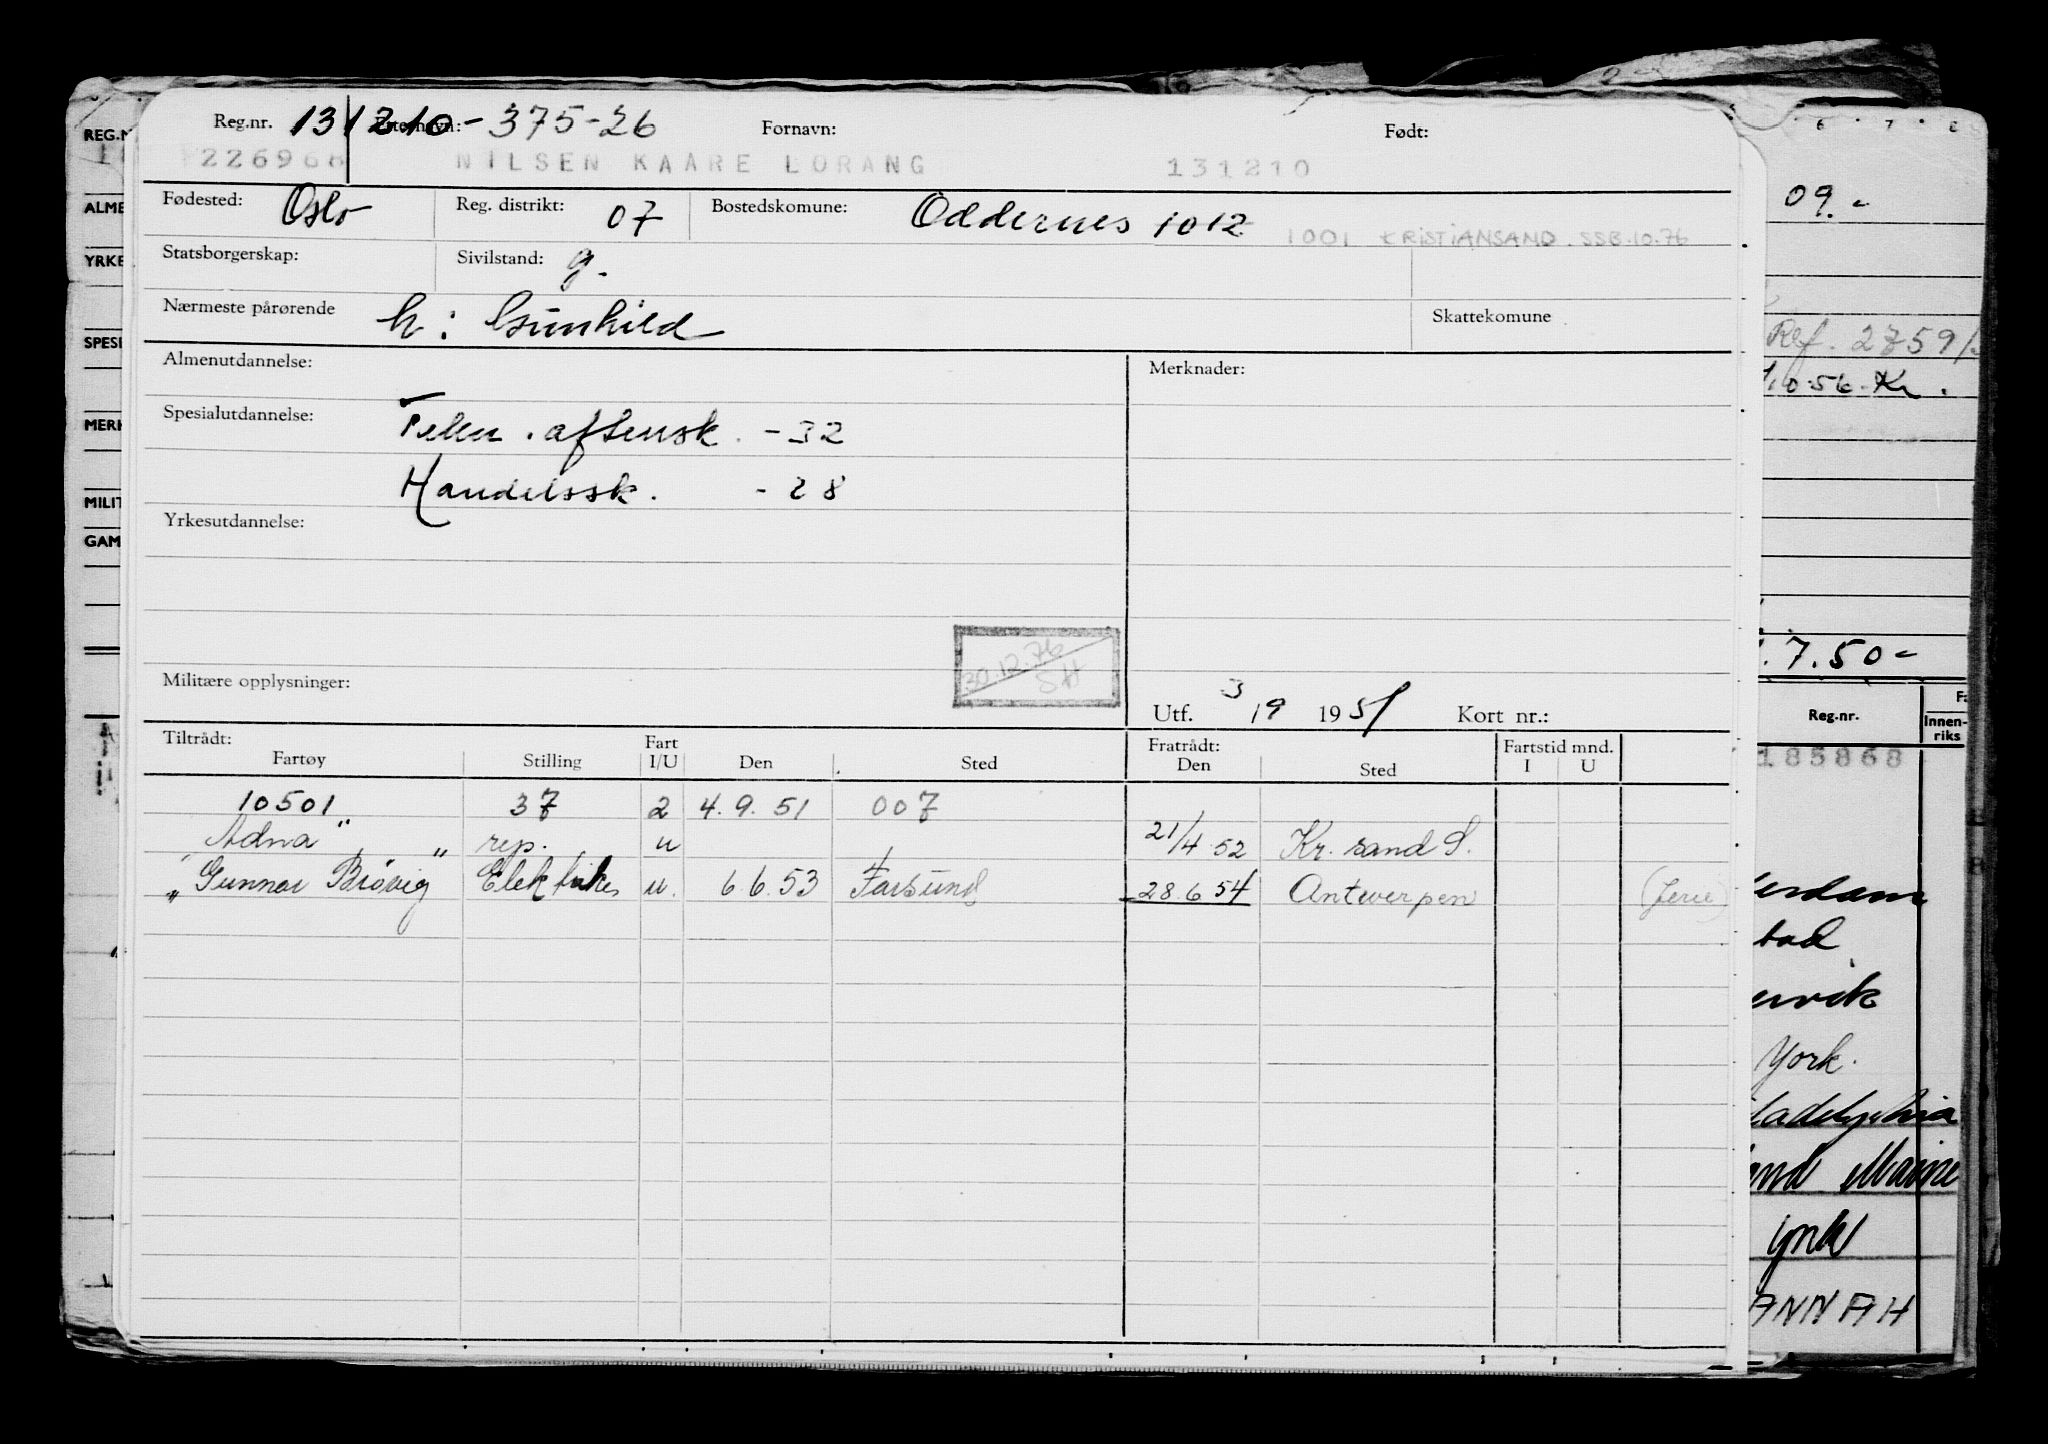 Reg.nr. 131210-375-26 Etternavn: Fornavn: Født:
226968 NILSEN KAARE LORANG 131210
Fødested: Oslo Reg. distrikt: 07 Bostedskomune: Oddernes 1012 1001 KRISTIANSAND. SSB.10.76
Statsborgerskap: Sivilstand: g.
Nærmeste pårørende h: Gunhild Skattekomune
Almenutdannelse: Merknader:
Spesialutdannelse: aftensk. -32
Handelssk. -28
Yrkesutdannelse:
30.12.76
SH
Militære opplysninger:
Utf. 3/9 1951 Kort nr.:
Tiltrådt: Fart Fratrådt: Fartstid mnd.
Fartøy Stilling I/U Den Sted Den Sted I U
10501 37 2 4.9.51 007
"Adna" " rep. u 21/4 52 Kr. sand S.
"Gunnar Brøvig" u. 6.6.53 Farsund 28.6 54 Antwerpen (ferie)
REG.N
ALME
YRKE
SPESI
MERK
MILIT
GAM
6 7 8
09.-
Ref. 2759/
10.56. Kr.
.7.50-
Reg.nr. Innen-
riks
185868
erdam
stad
ervik
York.
ladelphia
and Maine
ANNAH